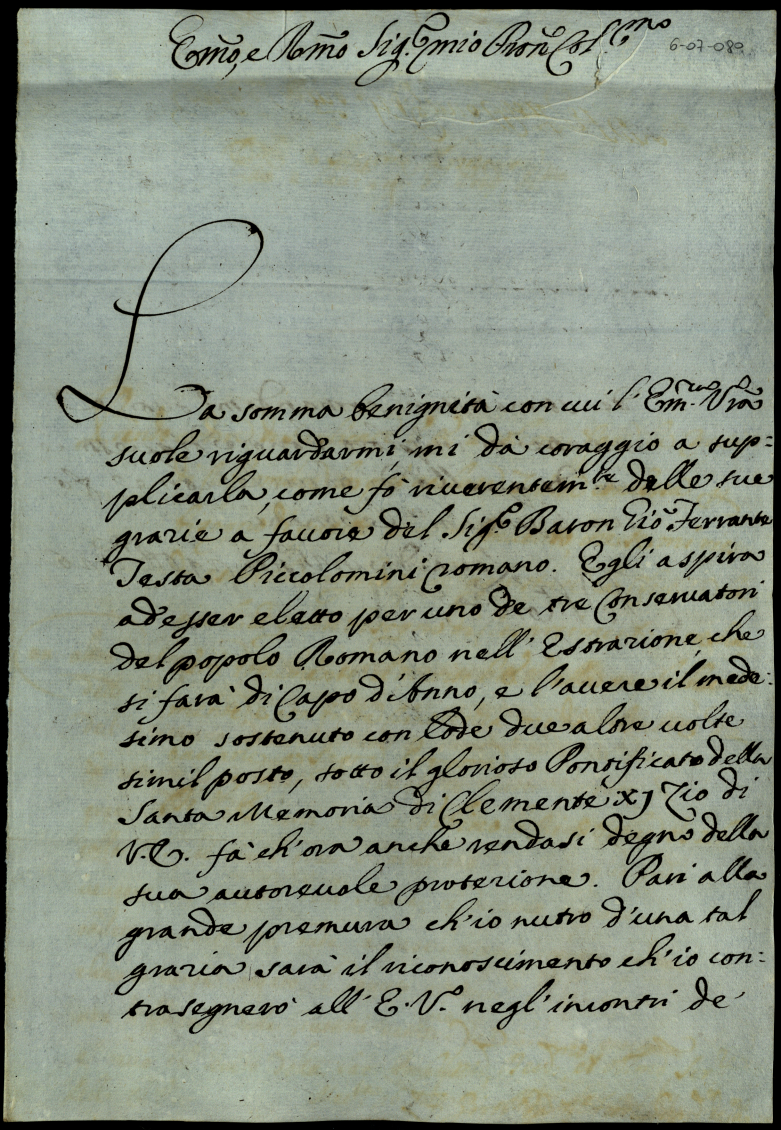 Em̃o, e Rm̃o Sig.r mio Pron̄ Col.mo
6-07-089
La somma benignità con cui l'Em.za Vrã
suole riguardarmi, mi dà coraggio a sup=
plicarla, come fò riverentem.te delle sue
grazie a favore del Sig.r Baron Gio: Ferrante
Testa Piccolomini romano. Egli aspira
ad esser eletto per uno de tre Conservatori
del popolo Romano nell'Estrazione, che
si farà di Capo d'Anno, e l'avere il mede:
simo sostenuto con lode due altre volte
simil posto, sotto il glorioso Pontificato della
Santa Memoria di Clemente XJ Zio di
V.E. fà ch'ora anche rendasi degno della
sua autorevole protezione. Pari alla
grande premura ch'io nutro d'una tal
grazia sarà il riconoscimento ch'io con:
trasegnerò all'E.V.a negl'incontri de